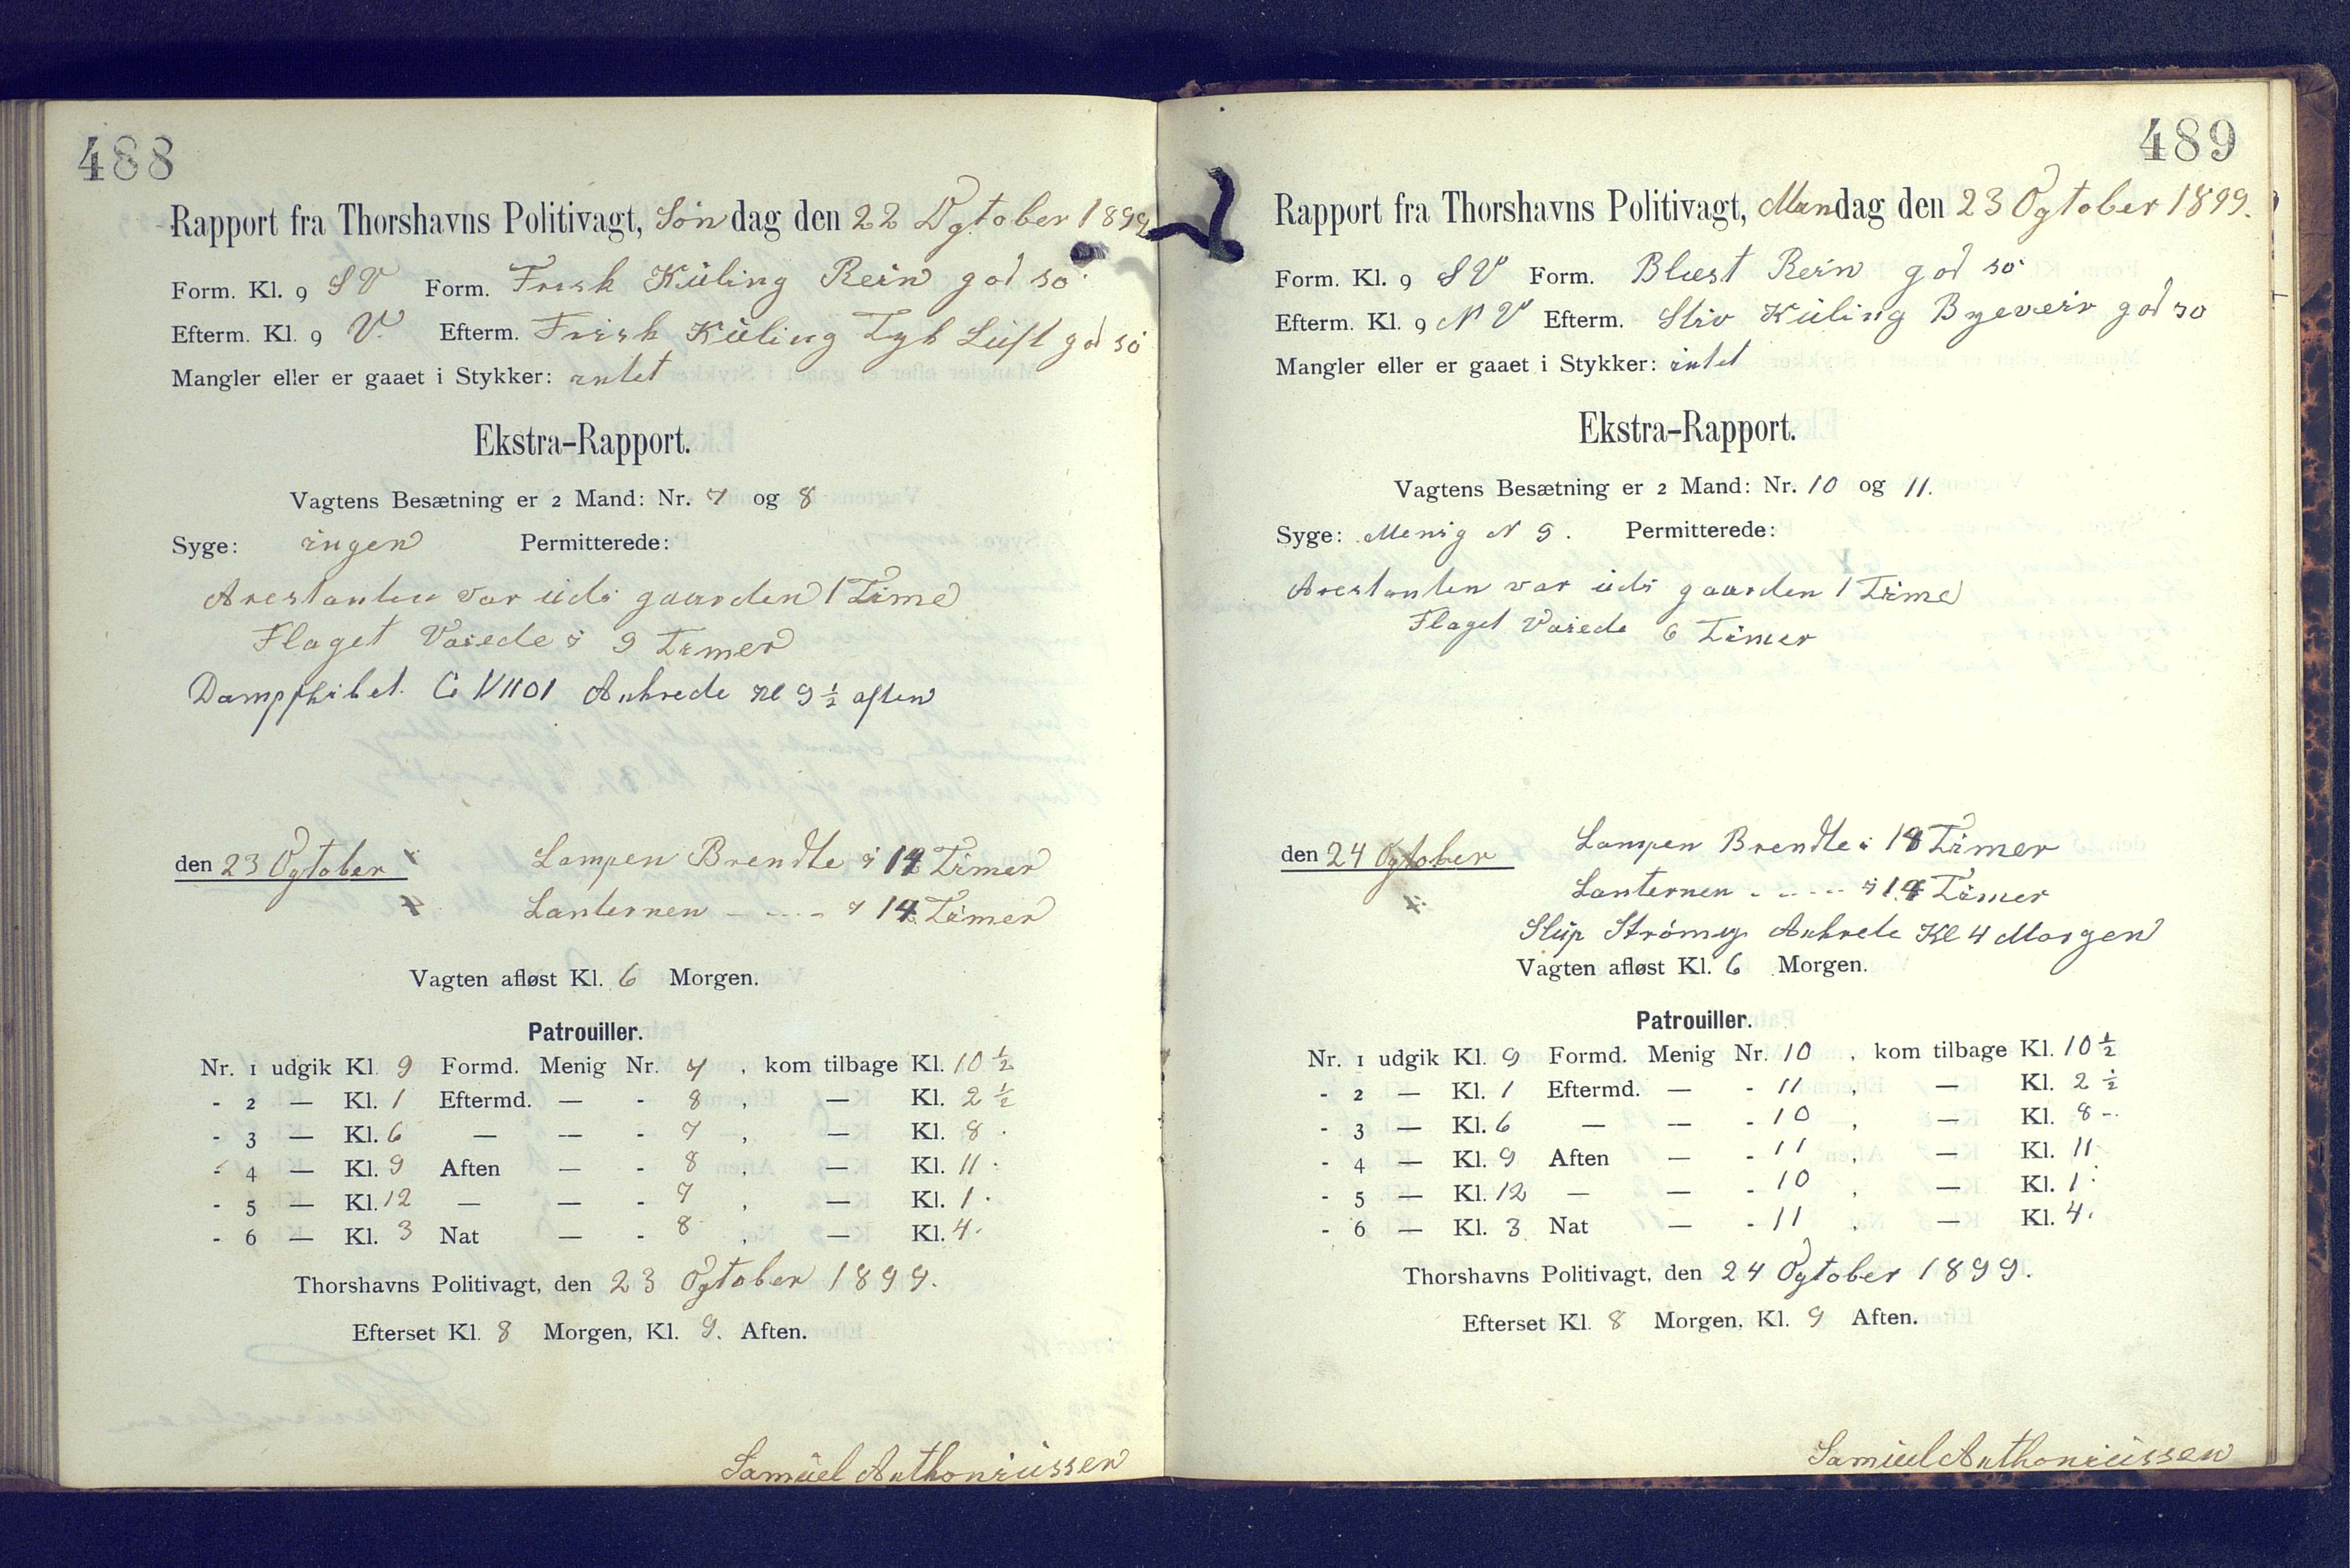 488
Rapport fra Thorshavns Politivagt, Søndag den 22 Ogtober 1899
Form. Kl. 9 SV Form. Frisk Kuling Rein god sø
Efterm. Kl. 9 V. Efterm. Frisk Kuling Tyk Luft god sø
Mangler eller er gaaet i Stykker: intet
Ekstra-Rapport.
Vagtens Besætning er 2 Mand: Nr. 7 og 8
Syge: ingen Permitterede:
Arestanten var udi gaarden 1 Time
Flaget Vaiede i 9 Timer
Dampskibet Ankrede Kl 9 ½ aften
den 23 Ogtober Lampen Brendte i 14 Timer
Lanternen — - - - i 14 Timer
Vagten afløst Kl. 6 Morgen.
Patrouiller.
Nr. 1 udgik Kl. 9 Formd. Menig Nr. 7, kom tilbage Kl. 10 ½
- 2 — Kl. 1 Eftermd. — - 8, — Kl. 2 ½
- 3 — Kl. 6 — — - 7, — Kl. 8 -
- 4 — Kl. 9 Aften — - 8, — Kl. 11 -
- 5 — Kl. 12 — — - 7, — Kl. 1 -
- 6 — Kl. 3 Nat — - 8, — Kl. 4 -
Thorshavns Politivagt, den 23 Ogtober 1899.
Efterset Kl. 8 Morgen, Kl. 9. Aften.
Samuel Anthoniussen
489
Rapport fra Thorshavns Politivagt, Mandag den 23 Ogtober 1899.
Form. Kl. 9 SV Form. Blæst Rein god sø
Efterm. Kl. 9 NV Efterm. Stiv Kuling Byeveir god sø
Mangler eller er gaaet i Stykker: intet
Ekstra-Rapport.
Vagtens Besætning er 2 Mand: Nr. 10 og 11.
Syge: Menig N 9. Permitterede:
Arestanten var udi gaarden 1 Time
Flaget Vaiede 6 Timer
den 24 Ogtober Lampen Brendte i Timer
Lanternen - - - - i 14 Timer
Slup Strømø Ankrede Kl 4 Morgen
Vagten afløst Kl. 6 Morgen.
Patrouiller.
Nr. 1 udgik Kl. 9 Formd. Menig Nr. 10, kom tilbage Kl. 10 ½
- 2 — Kl. 1 Eftermd. — - 11, — Kl. 2 ½
- 3 — Kl. 6 — — - 10, — Kl. 8 -
- 4 — Kl. 9 Aften — - 11, — Kl. 11 -
- 5 — Kl. 12 — — - 10, — Kl. 1 -
- 6 — Kl. 3 Nat — - 11, — Kl. 4.
Thorshavns Politivagt, den 24 Ogtober 1899.
Efterset Kl. 8 Morgen, Kl. 9 Aften.
Samuel Anthoniussen